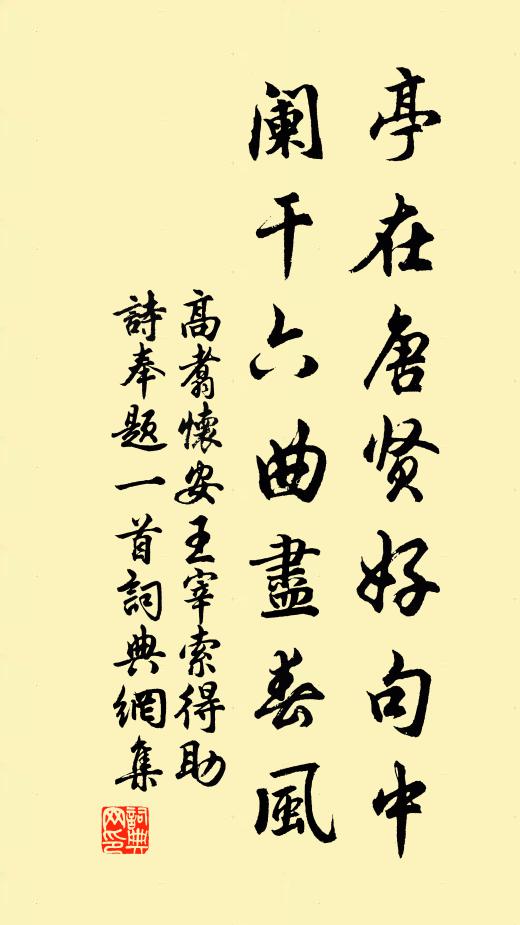 亭在唐贤好句中
阑干六曲盡春風
高翥懷安王宰索得助
詩奉題一首詞典網集
詞典
网印